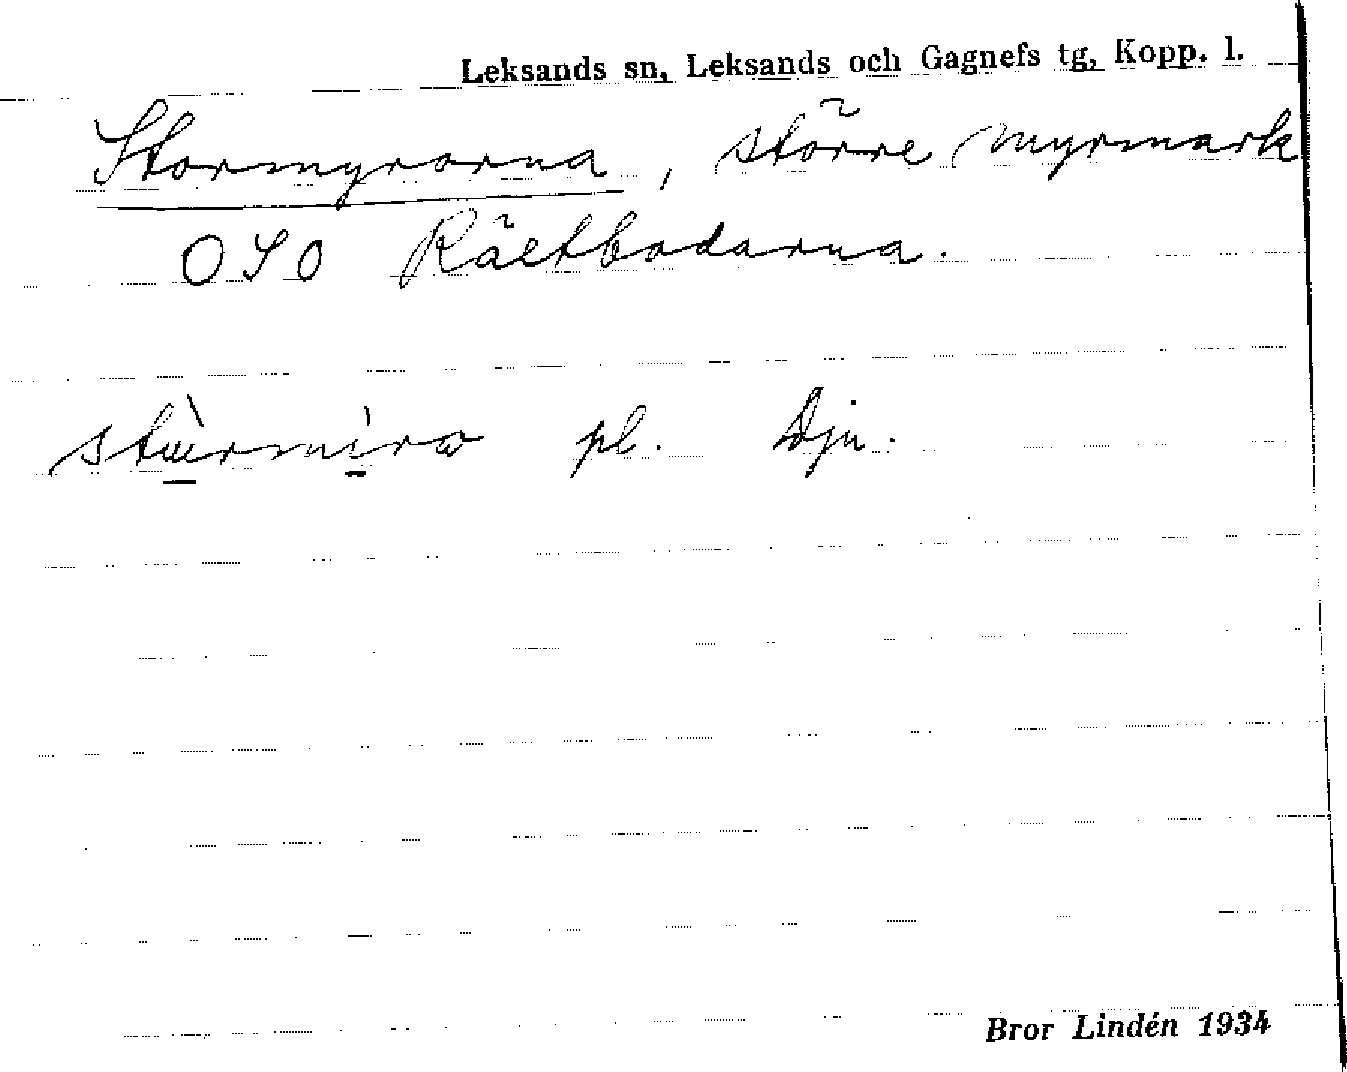 Leksands sn, Leksands och Gagnefs tg, Kopp. l.
Stormyrorna, större myrmark
OSO Rältbodarna.
pl. Dju.
Bror Lindén 1934